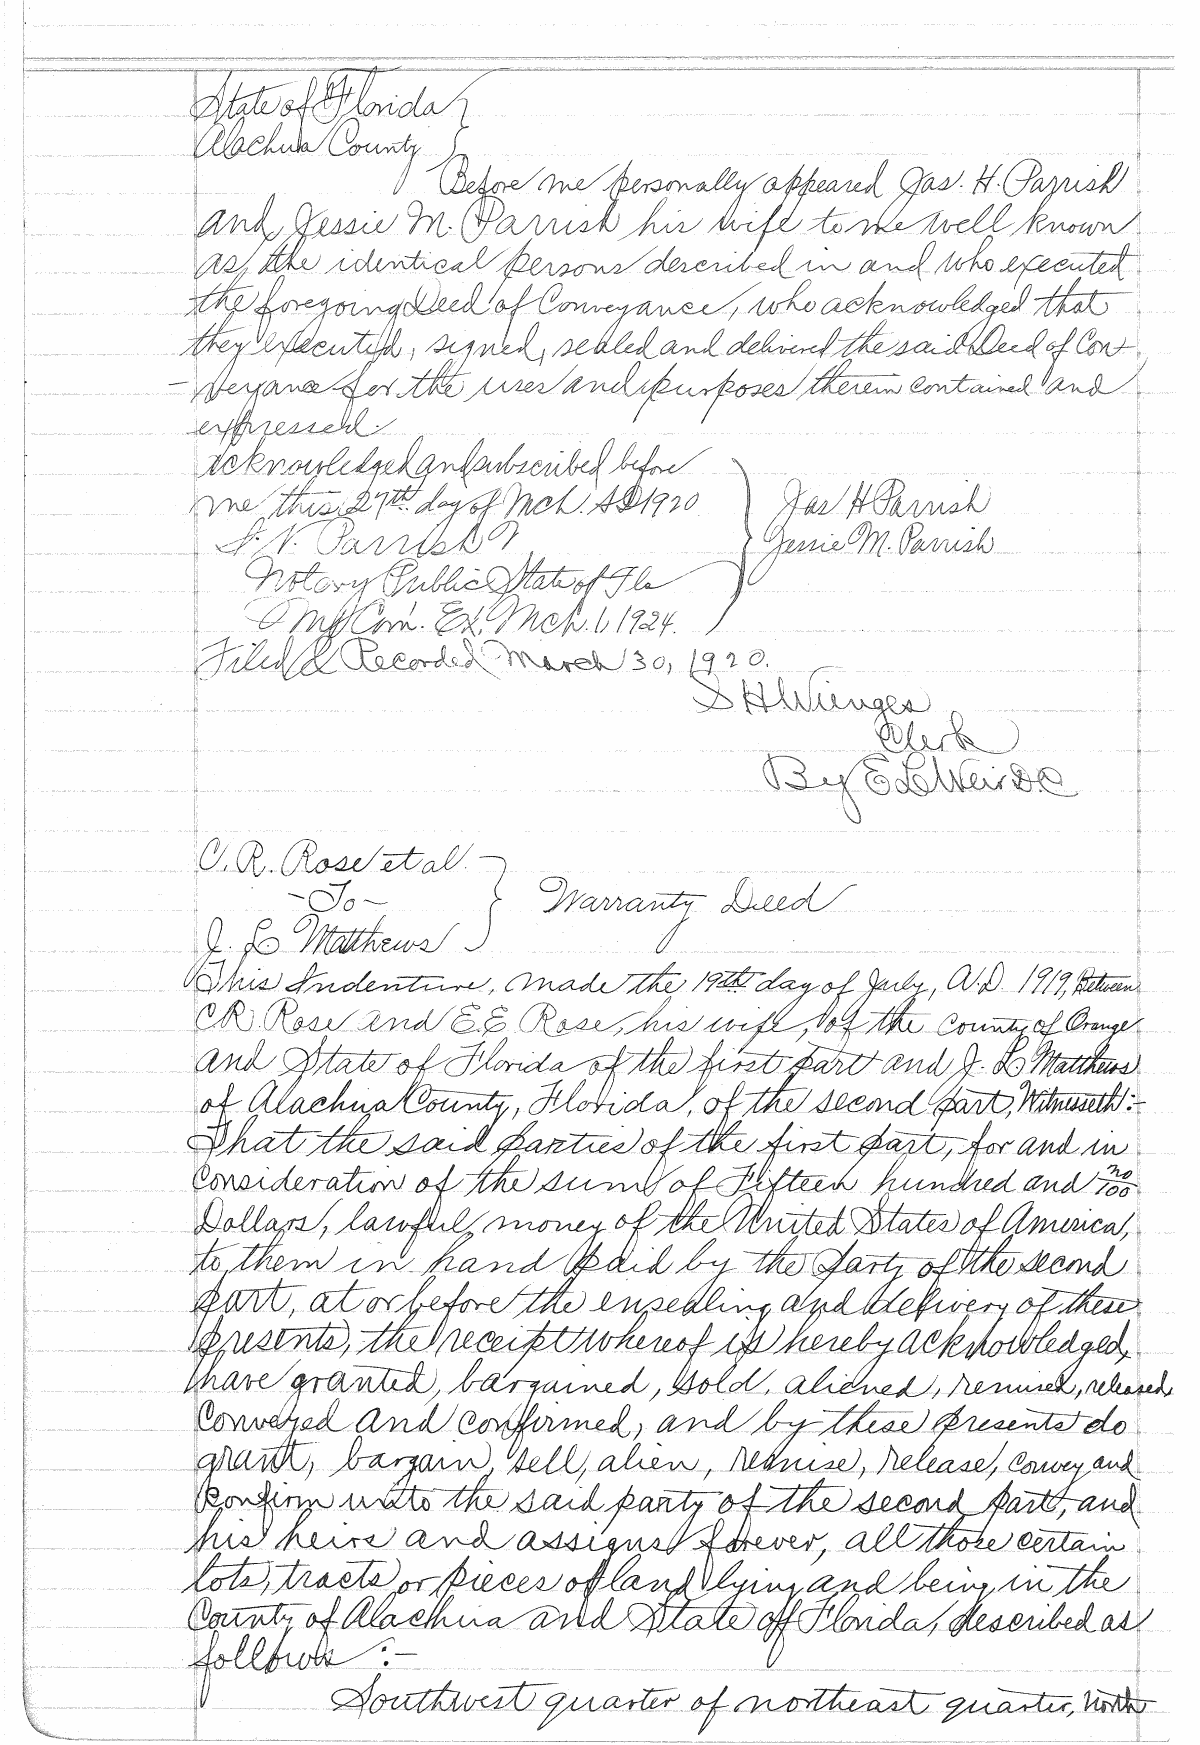 State of Florida
Alachua County
Before me personally appeared Jas. H. Parrish
and Jessie M. Parrish his wife to me well known
as the identical persons described in and who executed
the foregoing Deed of Conveyance, who acknowledged that
they executed, signed, sealed and delivered the said Deed of Con-
veyance for the uses and purposes therein contained and
expressed.
Acknowledged and subscribed before
me this 27th day of Mch. AD 1920
Jas H Parrish
Jessie M. Parrish
Parrish
Notary Public State of Fla
My Com. Ex. Mch. 6 1924.
Filed & Recorded March 30, 1920.
S H Wienges
Clerk
By E L Weir DC
C. R. Rose et al.
-To-
Warranty Deed
J. L Matthews
This Indenture, made the 19th day of July, A.D. 1919, Between
CR Rose and E E Rose, his wife, of the County of Orange
and State of Florida of the first part and J. L Matthews
of Alachua County, Florida, of the second part, Witnesseth:-
That the said parties of the first part, for and in
consideration of the sum of Fifteen hundred and no/100
Dollars, lawful money of the United States of America,
to them in hand paid by the party of the second
part, at or before the ensealing and delivery of these
presents, the receipt whereof is hereby acknowledged,
have granted, bargained, sold, aliened, remised, released,
conveyed and confirmed, and by these presents do
grant, bargain, sell, alien, remise, release, convey and
confirm unto the said party of the second part, and
his heirs and assigns forever, all those certain
lots, tracts or pieces of land lying and being in the
County of Alachua and State of Florida, described as
follows :-
Southwest quarter of northeast quarter, North